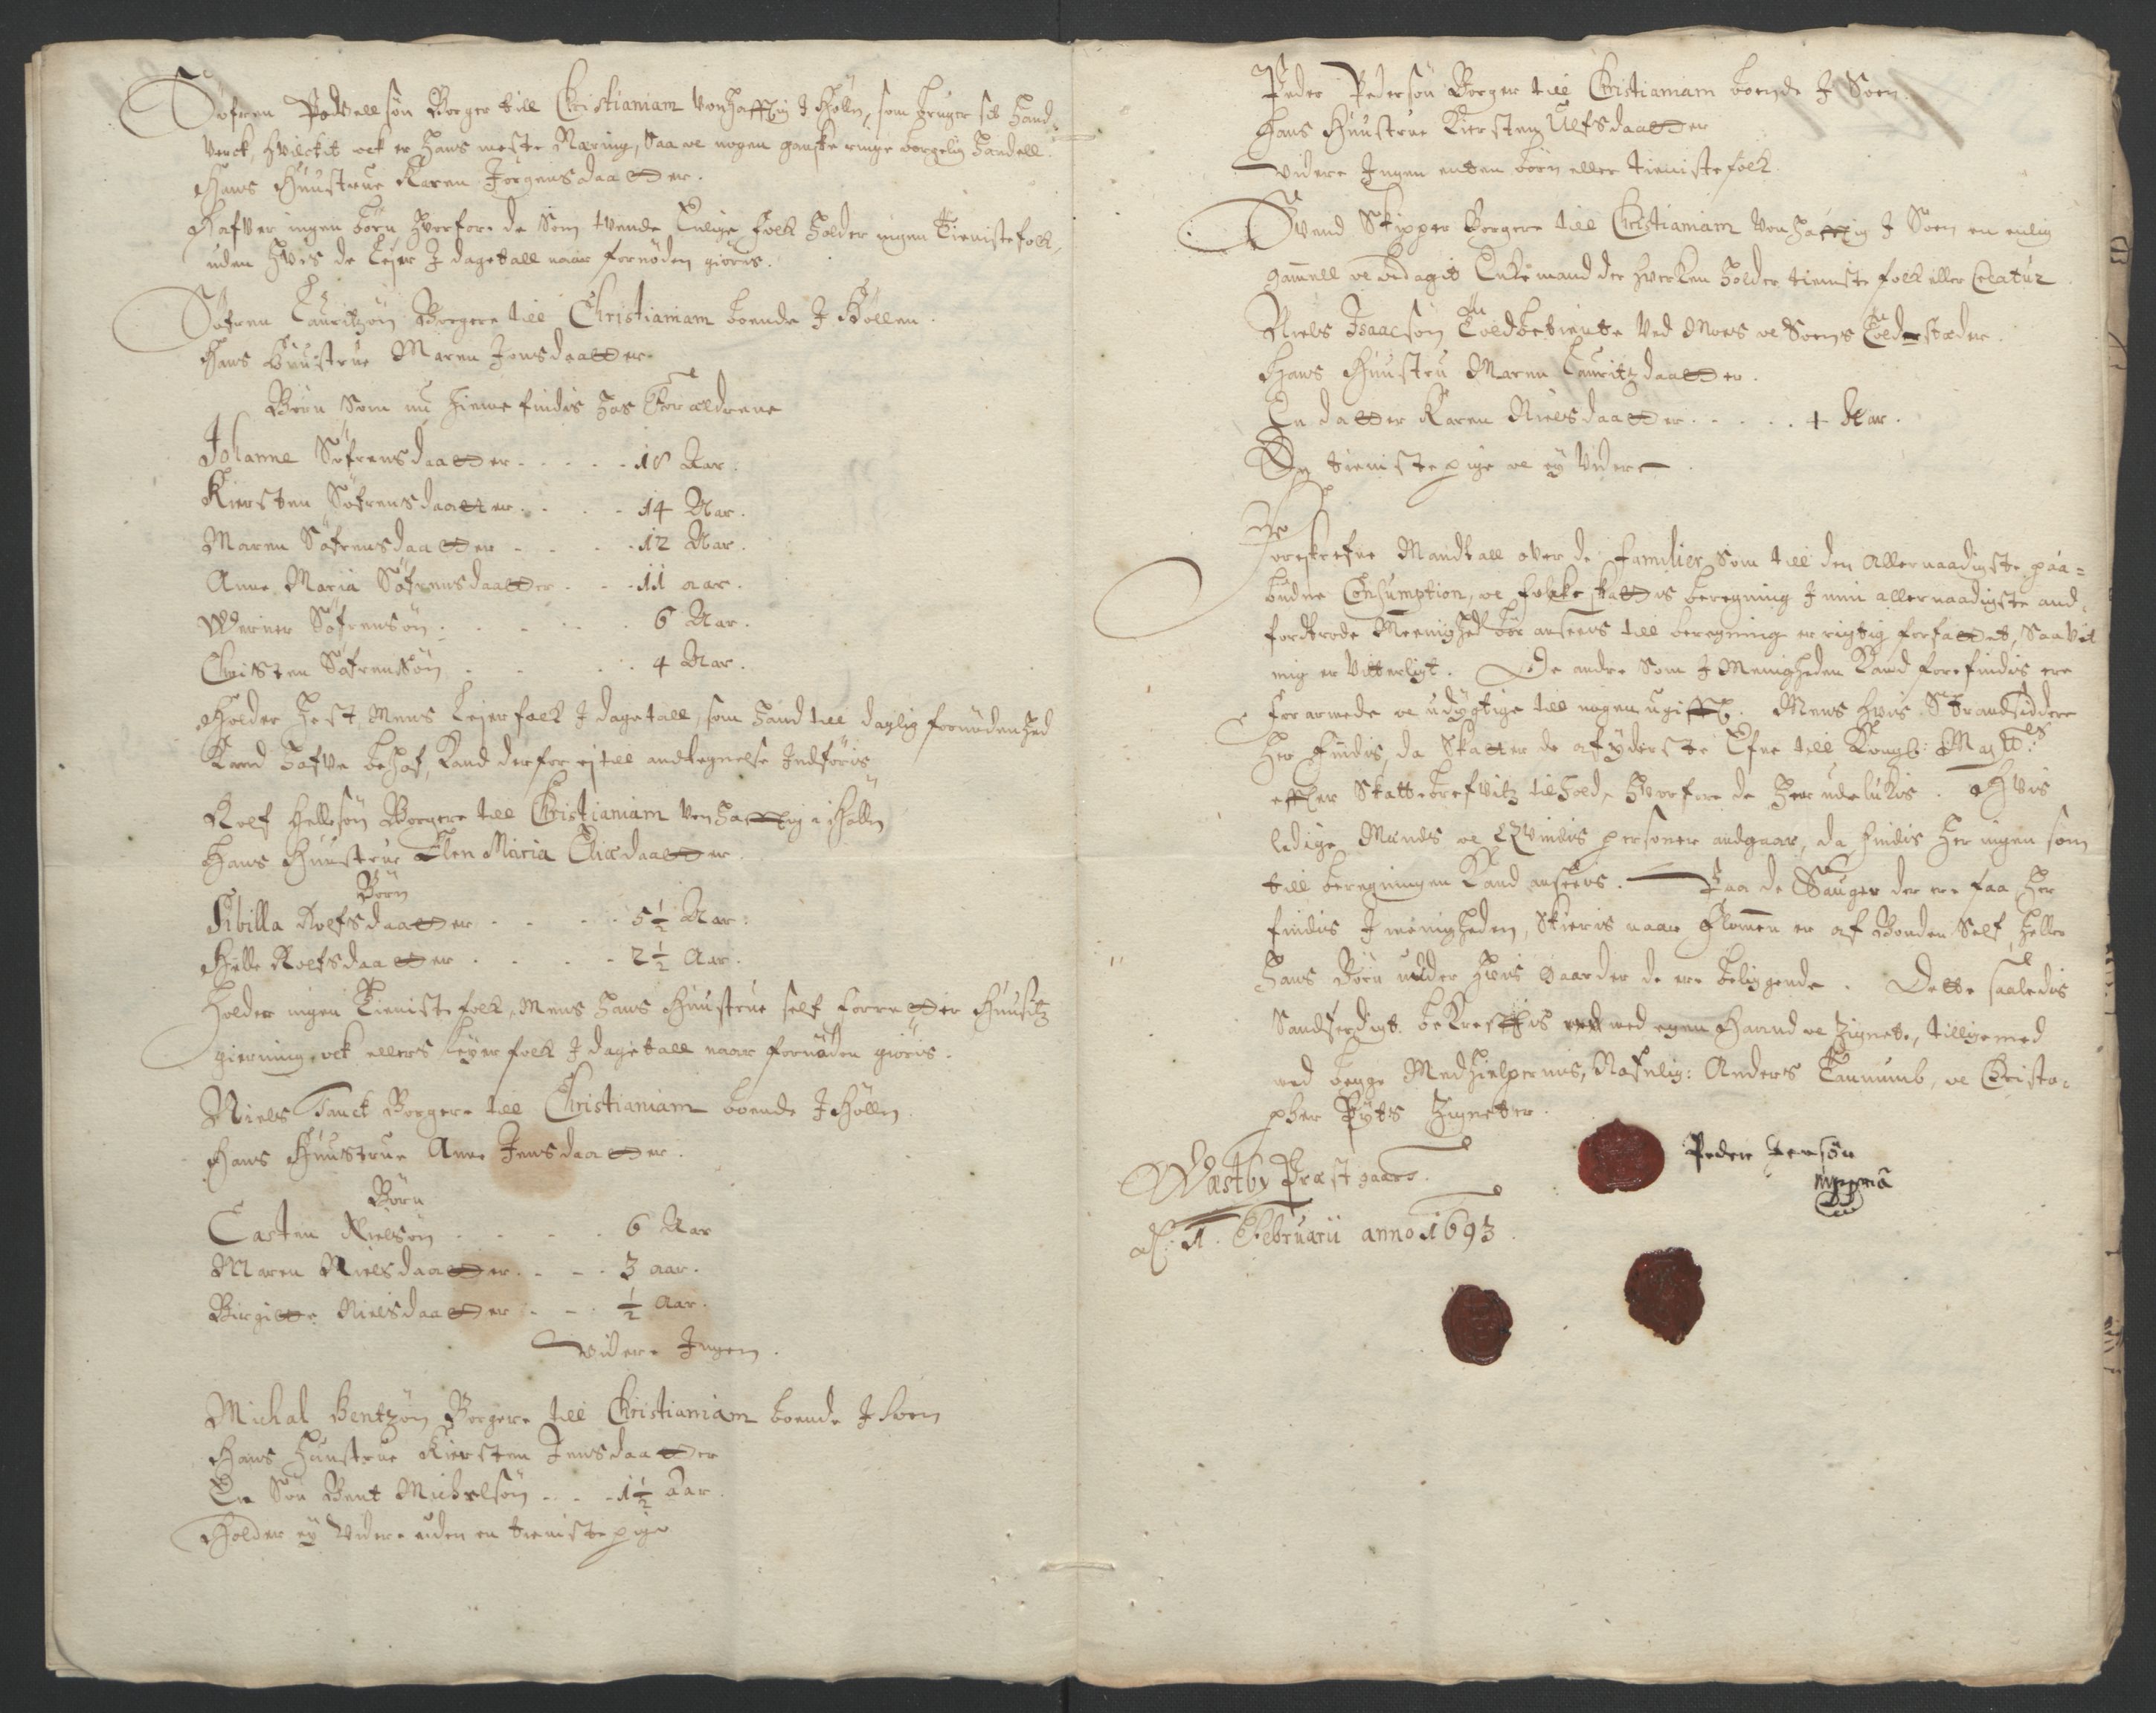 Söfren Podvellsön Borger till Christianiam Vonhafftig J Hölln, som bruger sit Hand-
verck, hvilckit ock er hans meste Næring, Saa oc nogen ganske ringe borgelig Handell.
Hans Huustrue Karen Jörgensdaatter.
Hafver ingen börn hvorfore de som tvende Enlige folck holder ingen Tienistefolck,
uden hvis de Lejer J dagetall naar fornöden giöris.
Söfren Lauritzön Borgere till Christianiam boende J Höllen.
Hans Huustrue Maren Jonsdaatter
Börn som nu hieme findis hos Foræeldrene
Johanne Söfrensdaatter . . . . . 18 Aar.
Kiersten Söfrensdaatter . . . . 14 Aar.
Maren Söfrensdaatter . . . . 12 Aar.
Anne Maria Söfrensdaatter . . . 11 aar.
Werner Söfrensön . . . . . 6 Aar.
Christen Söfrensön . . . . 4 Aar.
Holder Hest, Mens Lejer folck J dagetall, som hand till daglig fornödenhed
Kand hafve behof, Kand derfor ej till andtegnelse Indföris
Rolf Hellesön Borgere till Christianiam Vonhafftig i Hölln
Hans Huustrue Elen Maria Eliædaatter
Börn
Sibilla Rolfsdaatter . . . . . 5 1/2 Aar:
Helle Rolfsdaatter . . . . . 2 1/2 Aar.
Holder ingen Tieniste folck, Mens hans Huustrue self forretter Huusitz
gierning, ock ellers Lejer folck J dagetall naar fornöden giöris.
Niels Tanck Borgere till Christianiam boende J Hölln
Hans Huustrue Anne Jensdaatter.
Börn
Casten Nielsön . . . . . 6 Aar
Maren Nielsdaatter . . . . 3 aar.
Birgitte Nielsdaatter . . . 1/2 Aar.
videre Ingen.
Michal Bentzön Borgere till Christianiam boende J Soen
Hans Huustrue Kiersten Jensdaatter
En Sön Bent Michelsön . . . 1 1/2 Aar
Holder ey Videre uden en tienistepige
Peder Pedersön Borger till Christianiam boende J Soen.
Hans Huustrue Kiersten Ulfsdaatter
videre Ingen enten börn eller tienistefolck
Svend Skipper Borgere till Christianiam Vonhafftig J Soen en enlig
gammell oc bedagit Enkemand der hverken holder tieniste folck eller Creatur
Niels Isaacsön Toldbetiente Ved Moes oc Soens Toldestæder.
Hans Huustru Maren Lauritzdaatter.
En datter Karen Nielsdaatter . . . . . 4 Aar.
En tieniste pige oc ey Videre
Forskrefne Mandtall over de familier som till den Allernaadigste paa=
budne Consumption, oc folcke skattis beregning J min allernaadigste and-
fordtrode Meenighed bör ansees till beregning er rigtig forfattet, saavit
mig er Vitterligt. De andre som J Menigheden Kand forefindis ere
forarmede oc udygtige till nogen ugifft. Mens hvis Strandsiddere
her findis, da Skatter de af yderste Efne till Kongl: Maytts:
effter Skattebrefvitz tilhold, hvorfore de her udelukis. Hvis
ledige Mands oc Qvindis personer andgaar, da findis her ingen som
till beregningen Kand ansees. Paa de Sauger der ere faa her
findis J menigheden, Skieris naar Flomen er af Bonden Self, heller
hans Börn under Hans Gaarder de ere beliggende. Dette saaledis
Sandferdigt bekrefftis med egen Haand oc Zignete, tillige med
med begge Medhielpernis, Nafnlig: Anders Tannumb, oc Christo-
pher Pyts Zigneter.
Wæstby Præstgaard.
d: 1. Februarii anno 1693.
Peder Jensön
mppria